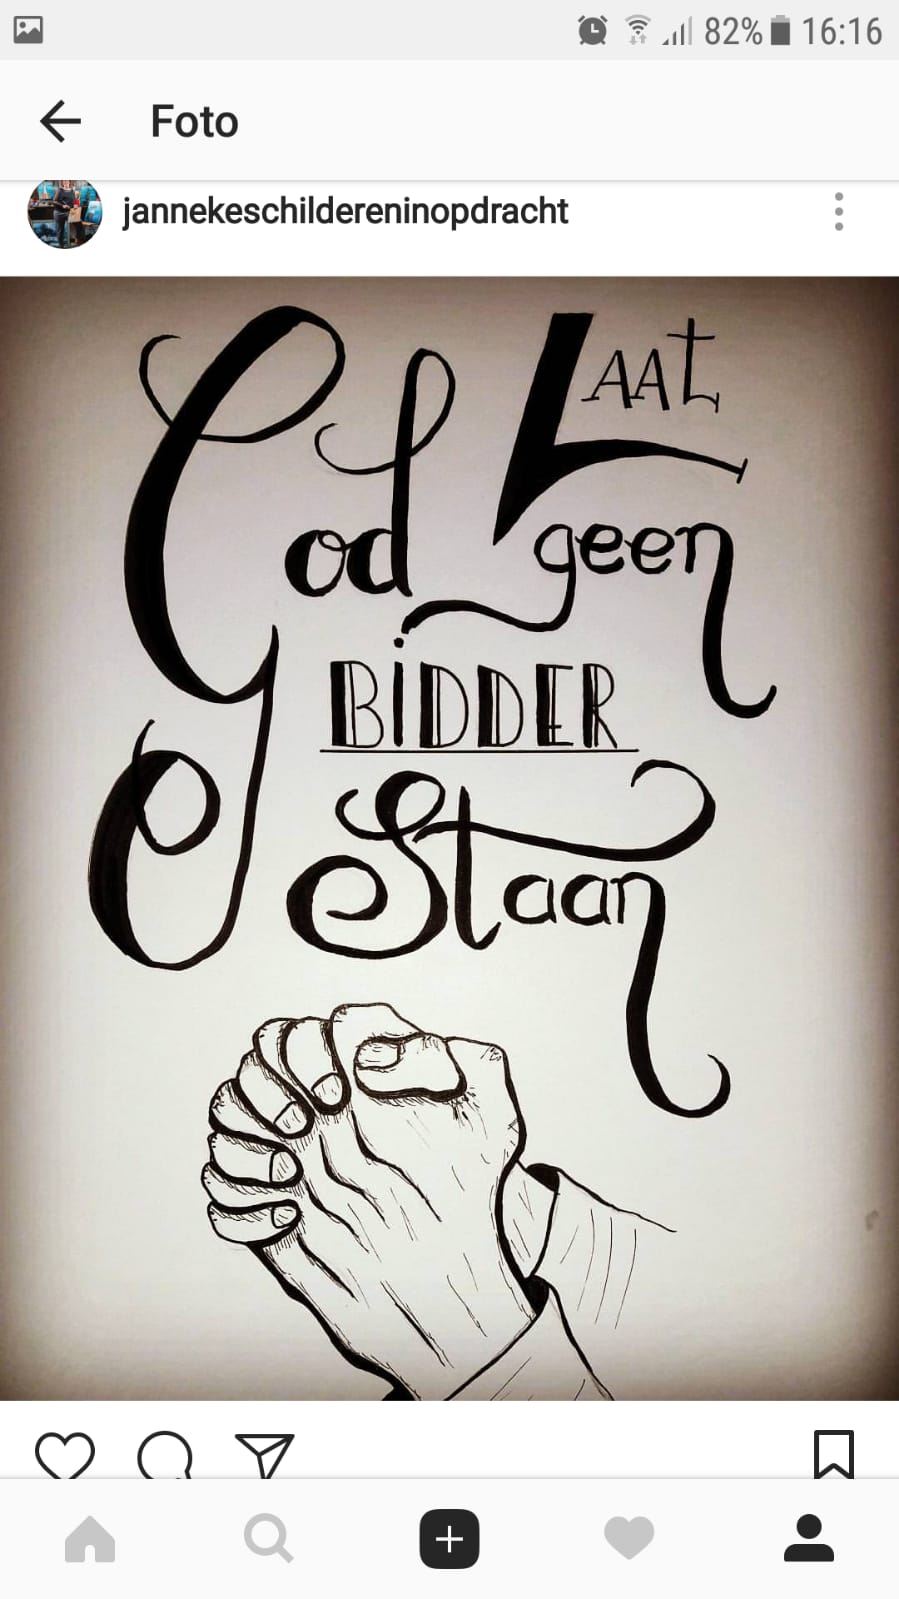 82% 16:16
Foto
jannekeschildereninopdracht
God Laat
geen
BiDDER
Staan